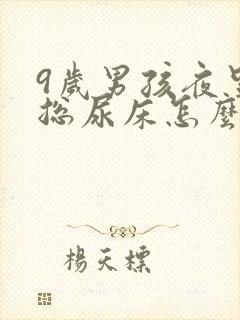 9歲男孩夜里
總尿床怎麼
楊天標